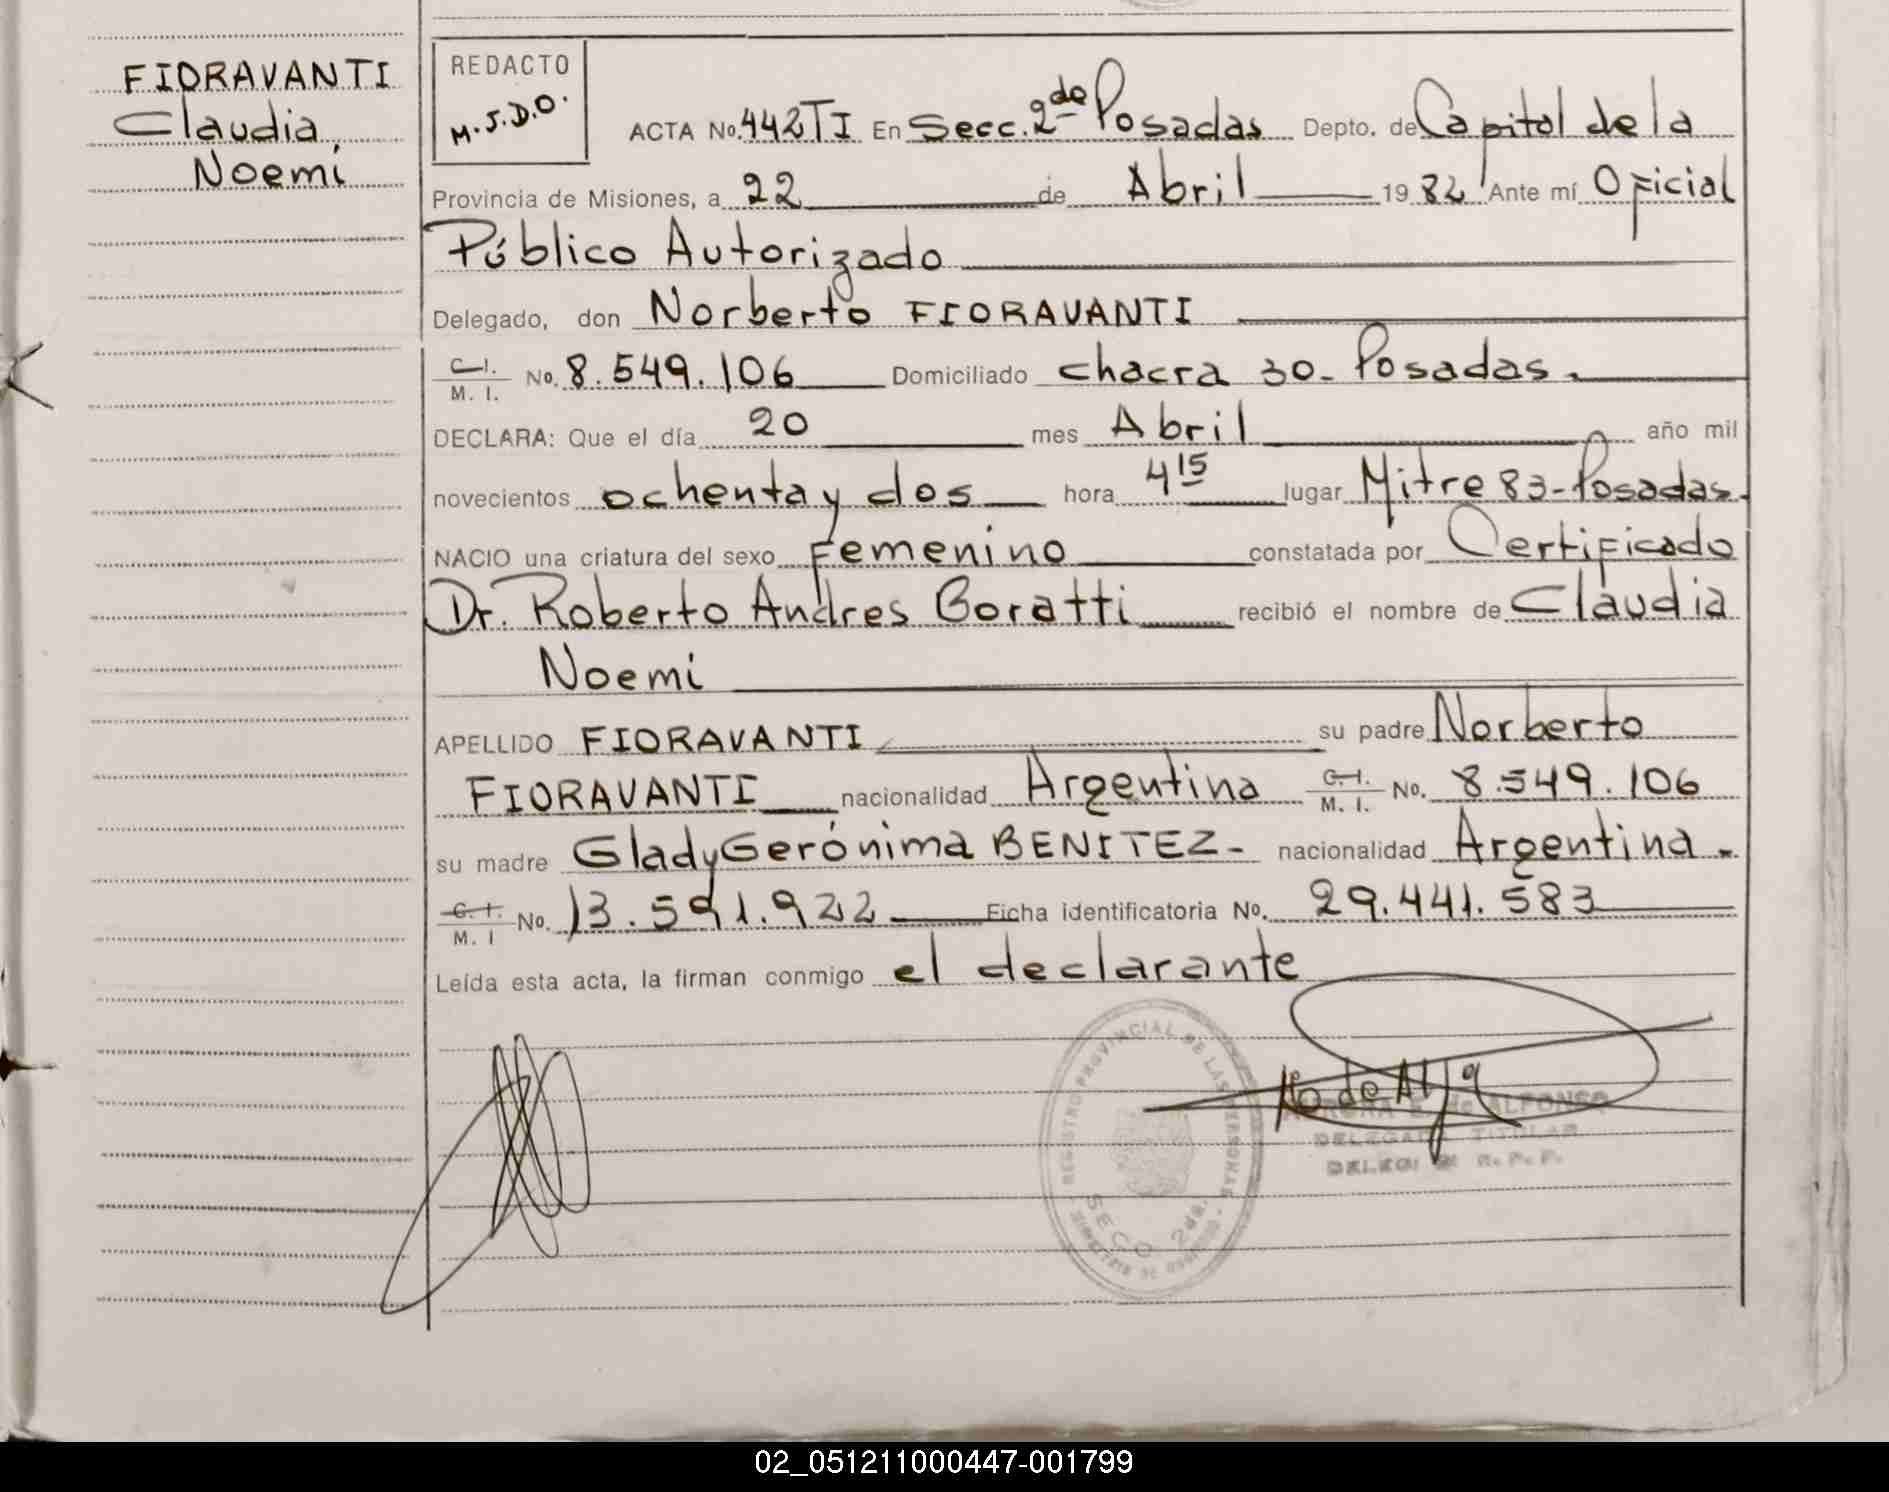 FIORAVANTI
Claudia
Noemí
REDACTO
M.J.D.O.
ACTA No. 442TI En Secc. 2da Posadas Depto. de Capital de la
Provincia de Misiones, a 22 de Abril 1982 Ante mí Oficial
Público Autorizado
Delegado, don Norberto FIORAVANTI
C.I.
M. I. No. 8.549.106 Domiciliado chacra 30- Posadas.
DECLARA: Que el día 20 mes Abril año mil
novecientos ochenta y dos hora 4 15 lugar Mitre 83-Posadas.
NACIO una criatura del sexo Femenino constatada por Certificado
Dr. Roberto Andres Boratti recibió el nombre de Claudia
Noemi
APELLIDO FIORAVANTI su padre Norberto
FIORAVANTI nacionalidad Argentina C.I. M. I. No. 8.549.106
su madre Glady Gerónima BENITEZ- nacionalidad Argentina.
C. I. M. I No. 13.591.922 Ficha identificatoria No. 29.441.583
Leída esta acta, la firman conmigo el declarante
REGISTRO PROVINCIAL DE LAS PERSONAS
SECC 2da.
MINISTERIO DE GOBIERNO
de ALFONSO
DELEGADA TITULAR
R. P. P.
02_051211000447-001799